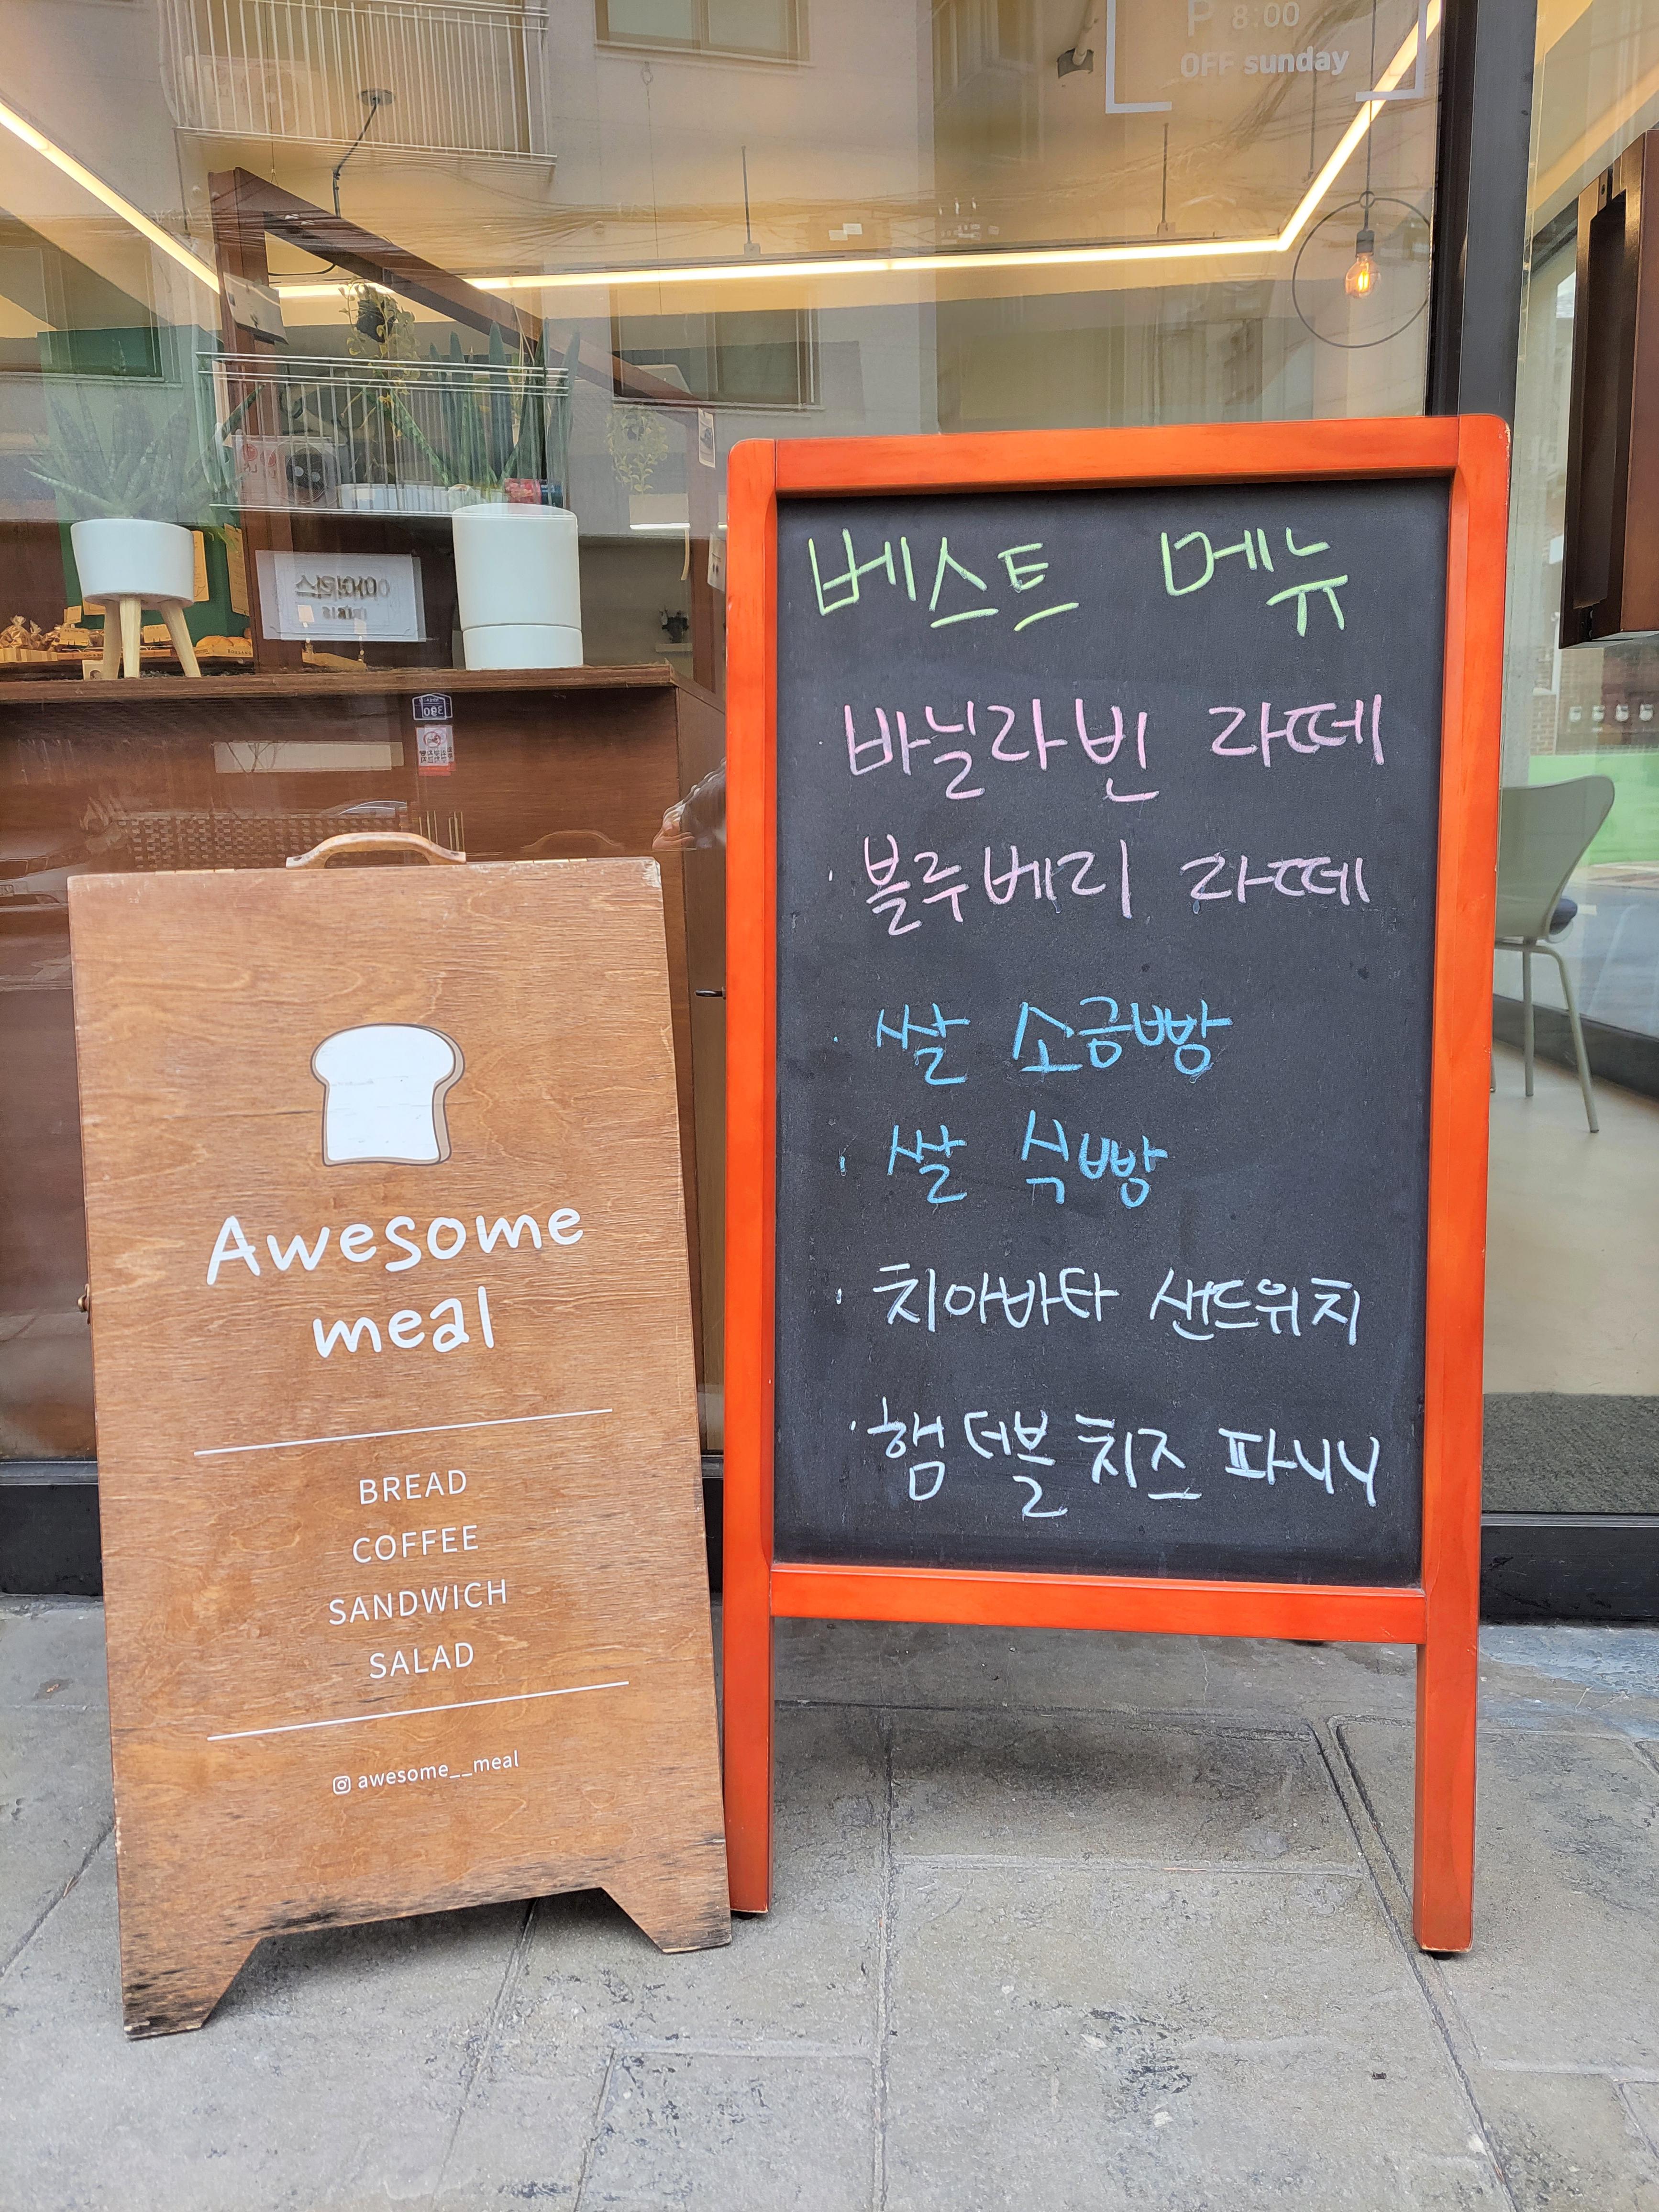 P 8:00
OFF sunday
베스트 메뉴
바닐라빈 라떼
블루베리 라떼
쌀 소금빵
쌀 식빵
치아바타 샌드위치
햄 더블 치즈 파니니
Awesome
meal
BREAD
COFFEE
SANDWICH
SALAD
awesome__meal